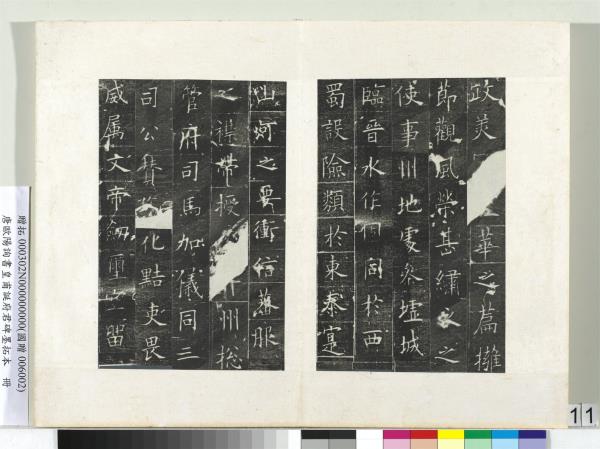 政美 華之篇擁
節觀風榮甚繡衣之
使事川地處參墟城
臨晉水作固同於西
蜀設險類於東秦寔
山河之要衝信蕃服
之襟帶授 州総
管府司馬加儀同三
司公贊 化黠吏畏
威属文帝劒璽 留
贈拓 000302N000000000(國贈 006002)
唐歐陽詢書皇甫誕府君碑墨拓本 冊
11